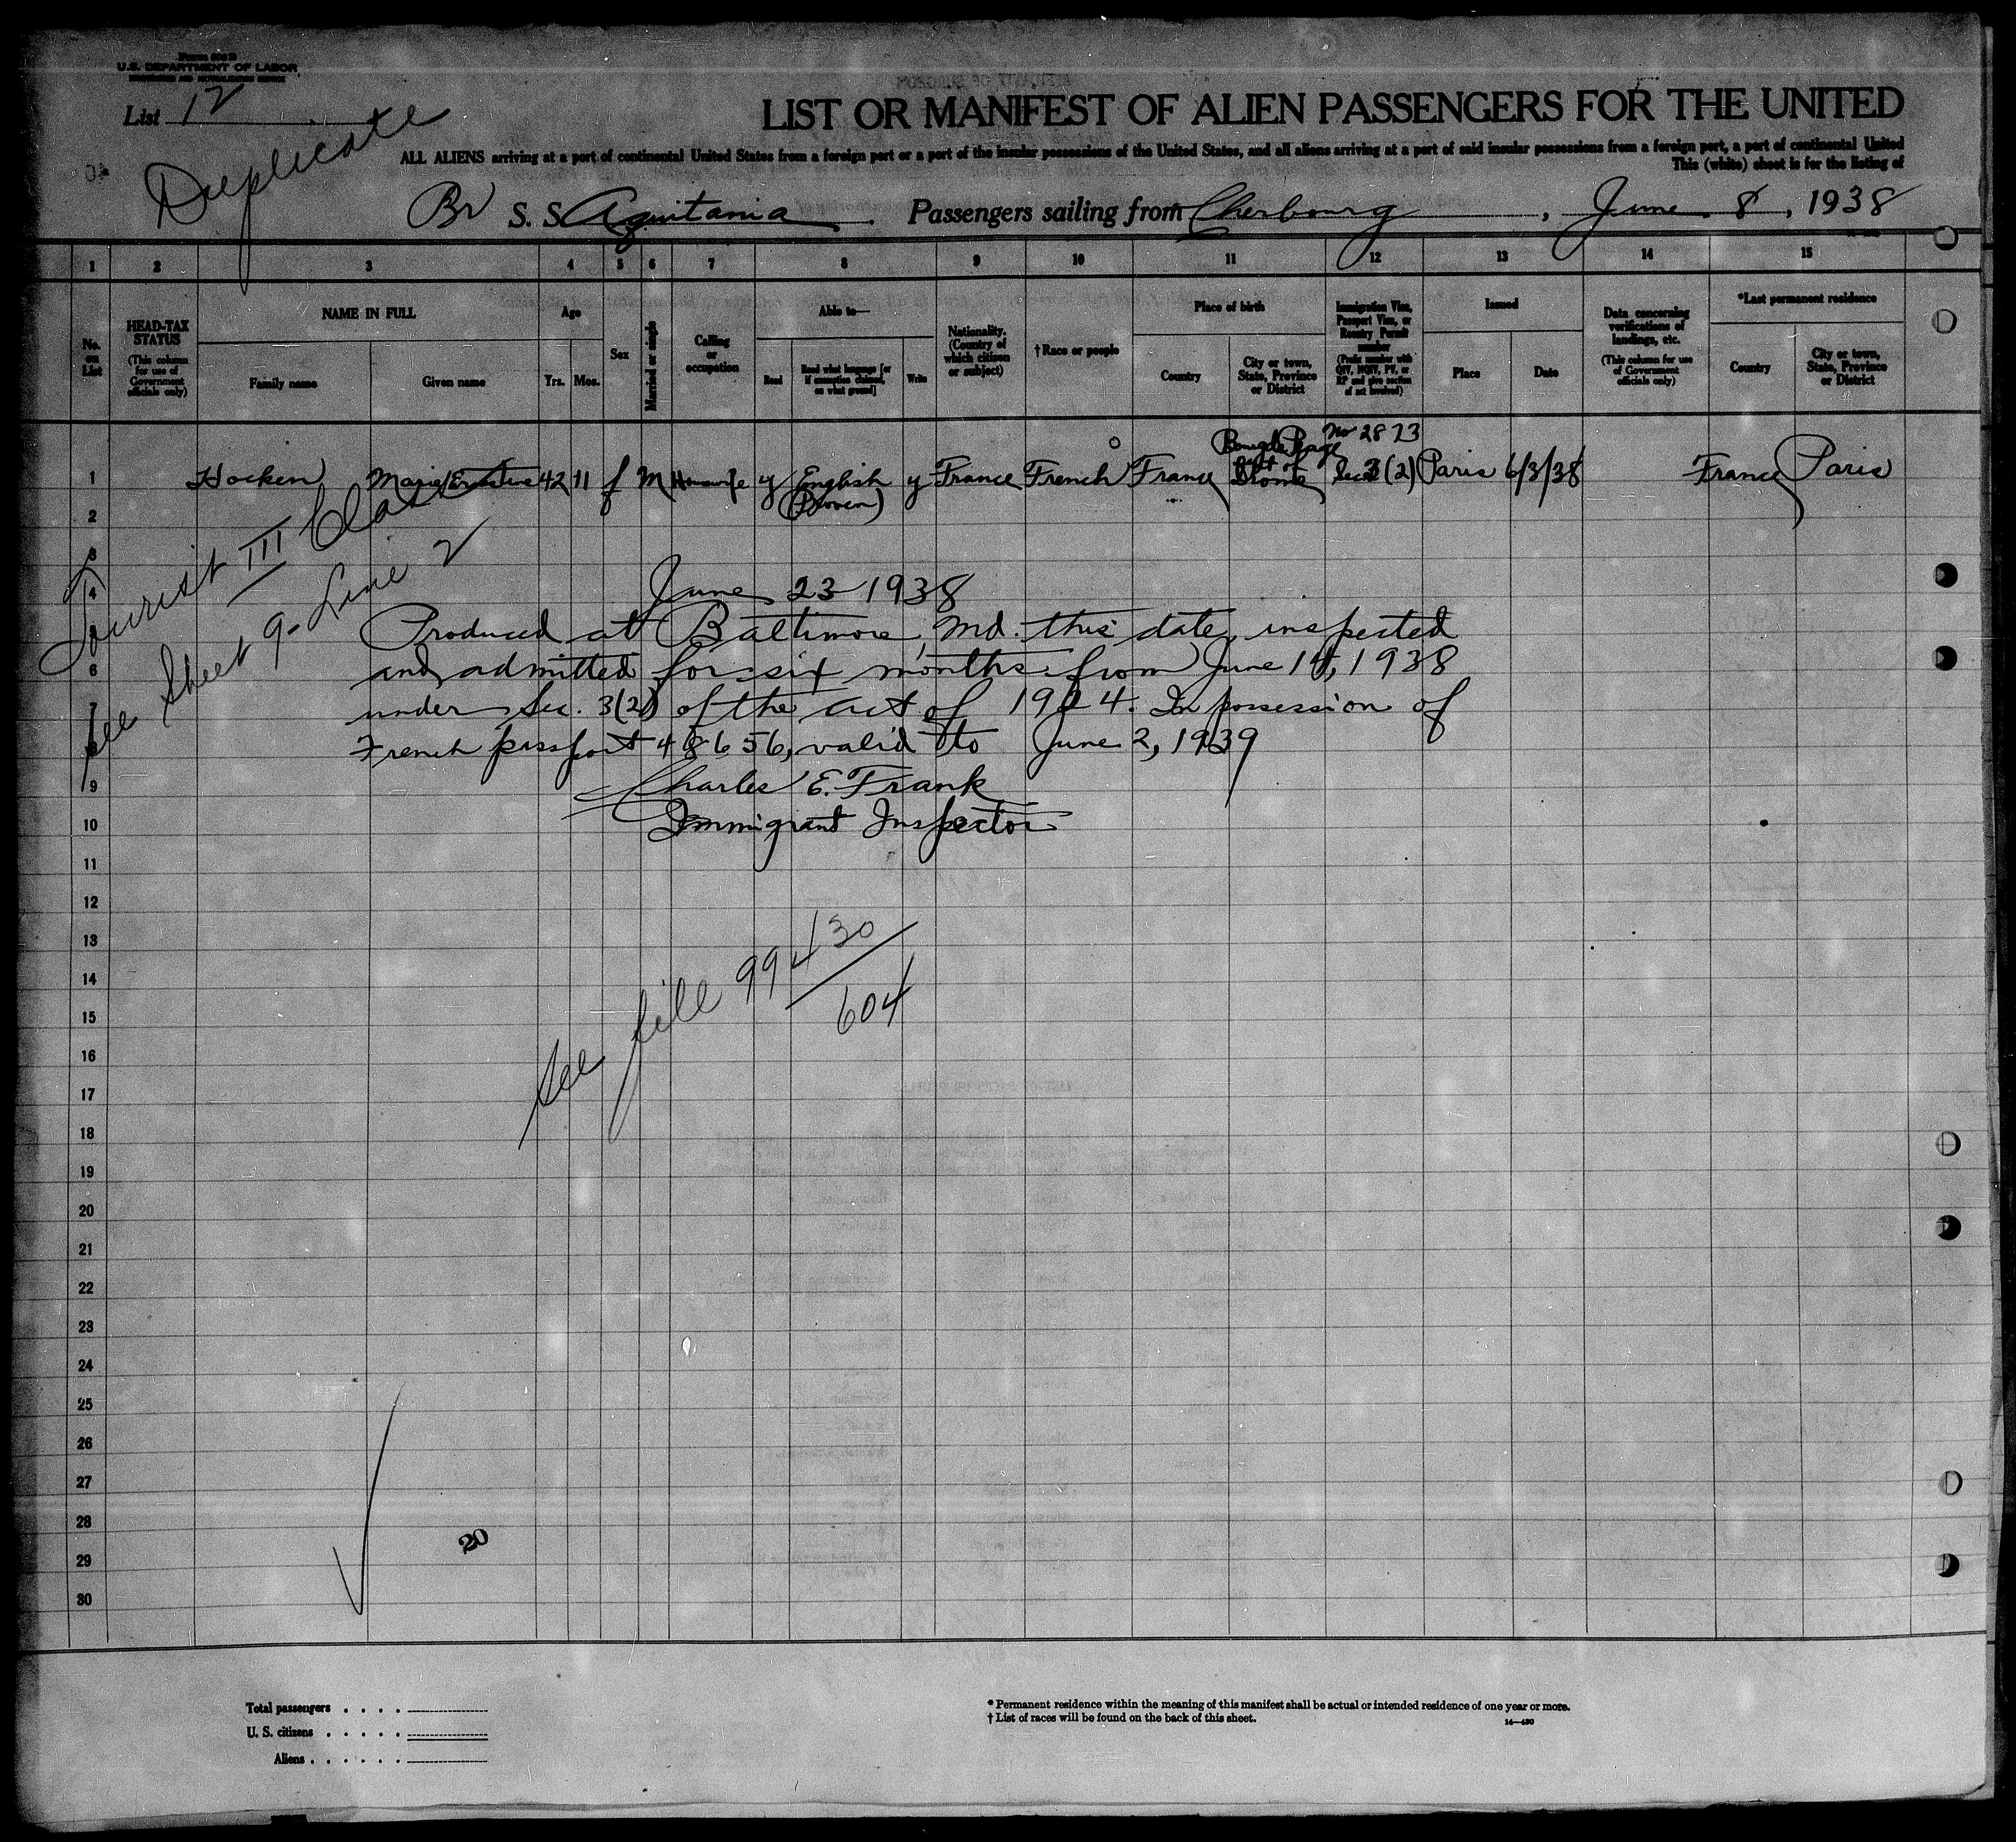 U.S. DEPARTMENT OF LABOR
List 12
Duplicate
LIST OR MANIFEST OF ALIEN PASSENGERS FOR THE UNITED
ALL ALIENS arriving at a port of continental United States from a foreign port or a port of the insular possessions of the United States, and all aliens arriving at a port of said insular possessions from a foreign port, a port of continental United
This (white) sheet is for the listing of
Br S. S. Aquitania Passengers sailing from Cherbourg, June 8, 1938
1 2 3 4 5 6 7 8 9 10 11 12 13 14 15
No. on List
HEAD-TAX STATUS (This column for use of Government officials only)
NAME IN FULL
Family name Given name
Age
Yrs. Mos.
Sex
Married or single
Calling or occupation
Able to—
Read Read what language [or if exemption claimed, on what ground] Write
Nationality. (Country of which citizen or subject)
† Race or people
Place of birth
Country City or town, State, Province or District
Immigration Visa, Passport Visa, or Reentry Permit number (Prefix number with QIV, NQIV, PV, or RP and give section of act involved)
Issued
Place Date
Data concerning verifications of landings, etc. (This column for use of Government officials only)
*Last permanent residence
Country City or town, State, Province or District
No 2873
1 Hocken Marie Ernestine 42 11 f M Housewife y English y France French France Drome Sec 3 (2) Paris 6/3/38 France Paris
2
Tourist III Class
See Sheet 9- Line 2
3
4
5
6
7
8
9
10
11
12
13
14
15
16
17
18
19
20
21
22
23
24
25
26
27
28
29
30
June 23 1938
Produced at Baltimore, Md. this date, inspected
and admitted for six months from June 14, 1938
under Sec. 3(2) of the act of 1924. In possession of
French passport 48656, valid to June 2, 1939
Charles E. Frank
Immigrant Inspector
See file 99430/604
20
Total passengers . . . .
U. S. citizens . . . . .
Aliens . . . . . .
* Permanent residence within the meaning of this manifest shall be actual or intended residence of one year or more.
† List of races will be found on the back of this sheet.
14—430